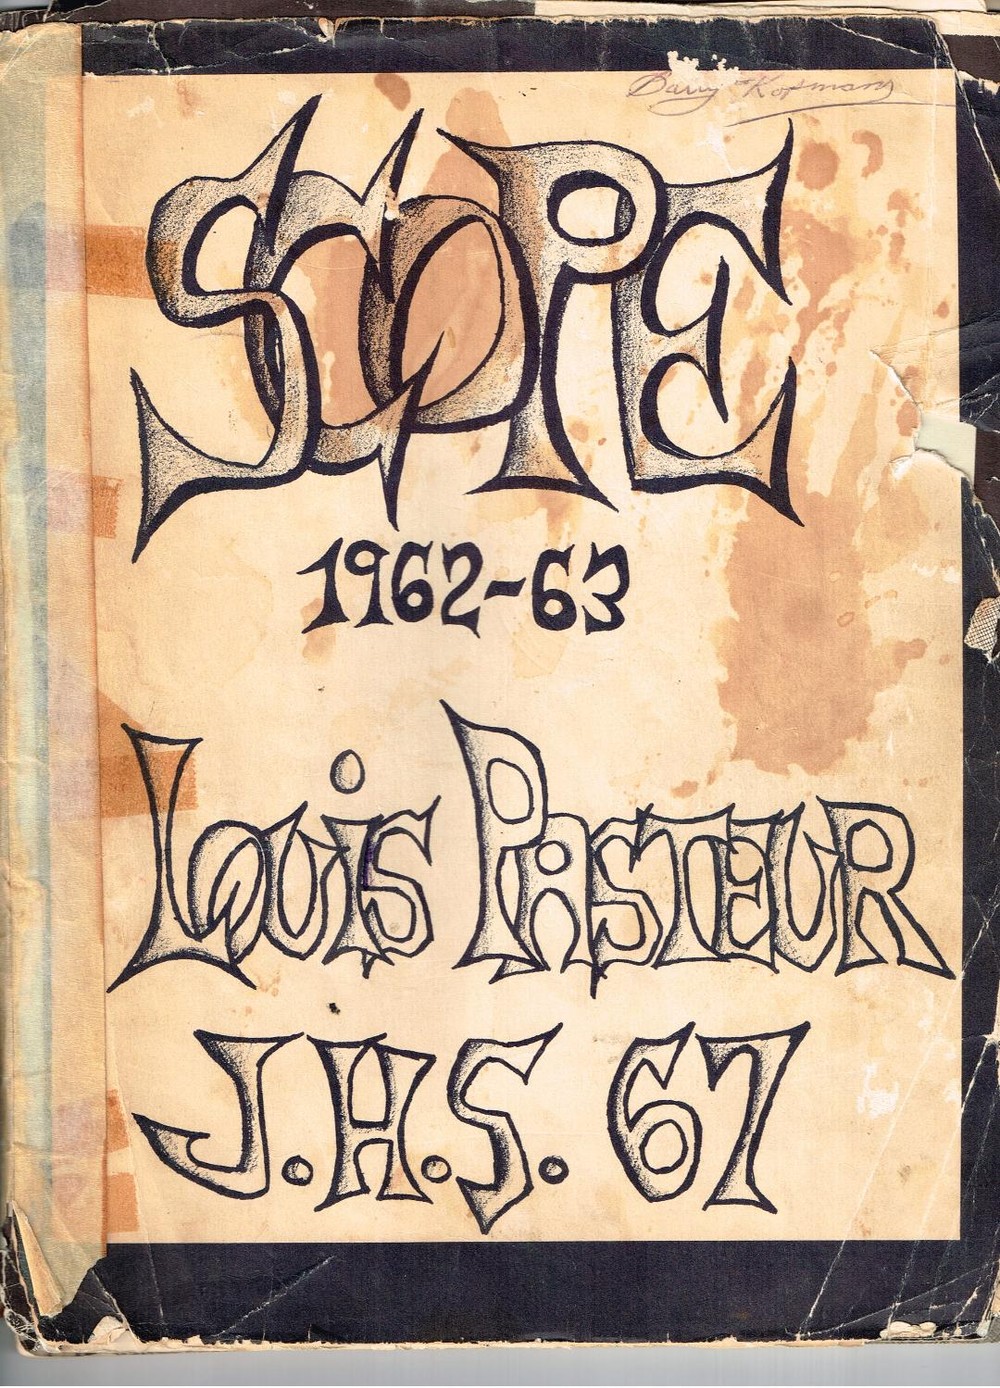 Barry Kofman
SCOPE
1962-63
Louis PASTEUR
J.H.S. 67